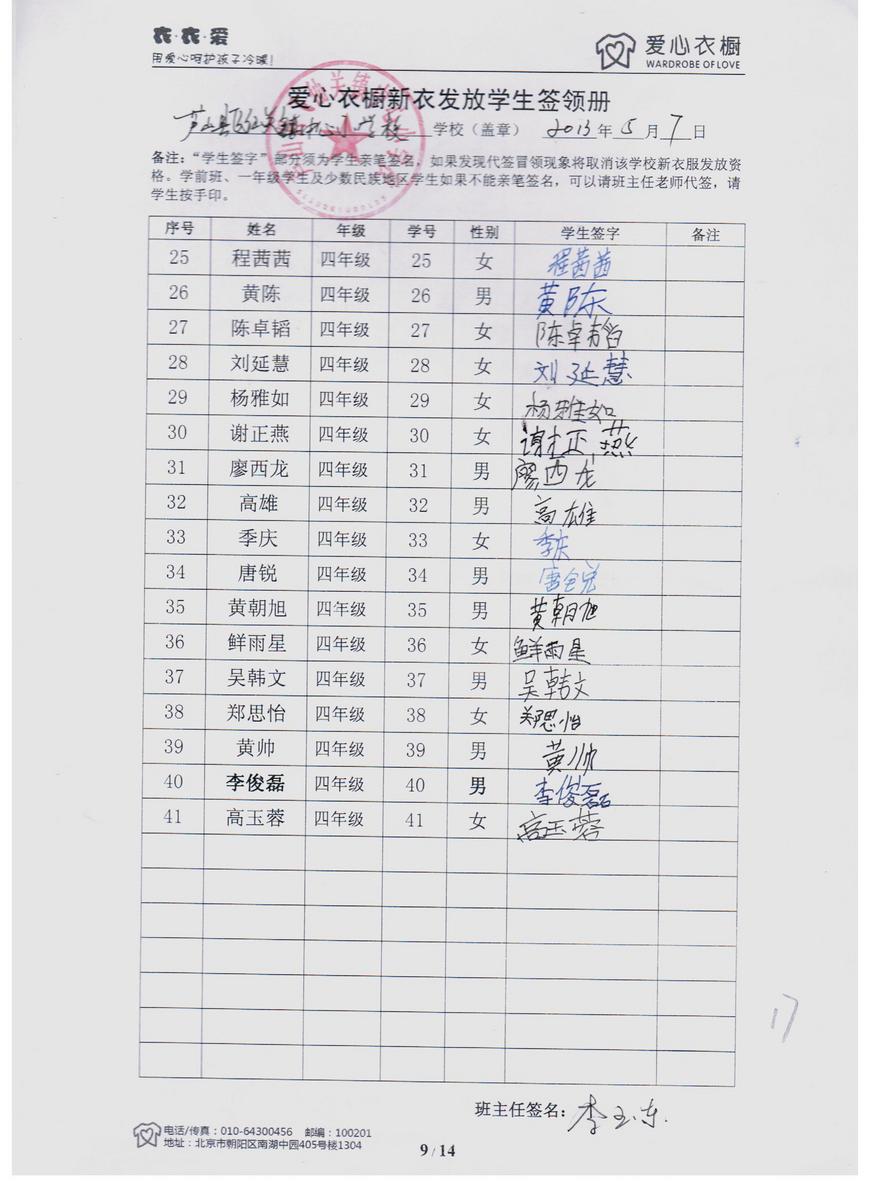 衣·衣·爱
用爱心呵护孩子冷暖!
爱心衣橱
WARDROBE OF LOVE
爱心衣橱新衣发放学生签领册
芦山县飞仙关镇中心小学校 学校（盖章） 2013年5月7日
备注：“学生签字”部分须为学生亲笔签名，如果发现代签冒领现象将取消该学校新衣服发放资
格。学前班、一年级学生及少数民族地区学生如果不能亲笔签名，可以请班主任老师代签，请
学生按手印。
序号 姓名 年级 学号 性别 学生签字 备注
25 程茜茜 四年级 25 女 程茜茜
26 黄陈 四年级 26 男 黄陈
27 陈卓韬 四年级 27 女 陈卓韬
28 刘延慧 四年级 28 女 刘延慧
29 杨雅如 四年级 29 女 杨雅如
30 谢正燕 四年级 30 女 谢正燕
31 廖西龙 四年级 31 男 廖西龙
32 高雄 四年级 32 男 高雄
33 季庆 四年级 33 女 季庆
34 唐锐 四年级 34 男 唐锐
35 黄朝旭 四年级 35 男 黄朝旭
36 鲜雨星 四年级 36 女 鲜雨星
37 吴韩文 四年级 37 男 吴韩文
38 郑思怡 四年级 38 女 郑思怡
39 黄帅 四年级 39 男 黄帅
40 李俊磊 四年级 40 男 李俊磊
41 高玉蓉 四年级 41 女 高玉蓉
17
班主任签名：李玉东
电话/传真：010-64300456 邮编：100201
地址：北京市朝阳区南湖中园405号楼1304
9 / 14